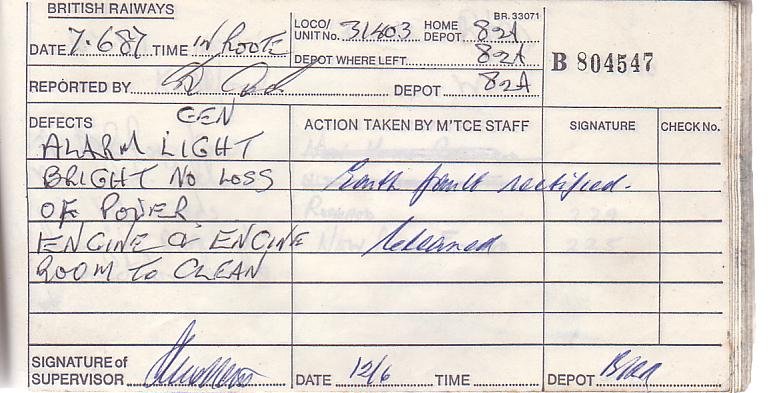 BRITISH RAILWAYS
BR. 33071
DATE 7.6 87 TIME IN ROOTE
LOCO/ UNIT No. 31403 HOME DEPOT 82A
DEPOT WHERE LEFT 82A
B 804547
REPORTED BY DEPOT 82A
DEFECTS GEN
ACTION TAKEN BY M'TCE STAFF
SIGNATURE
CHECK No.
ALARM LIGHT
BRIGHT NO LOSS
Earth fault rectified.
OF POWER
ENGINE & ENGINE
ROOM TO CLEAN
SIGNATURE of SUPERVISOR
DATE 12/6 TIME
DEPOT